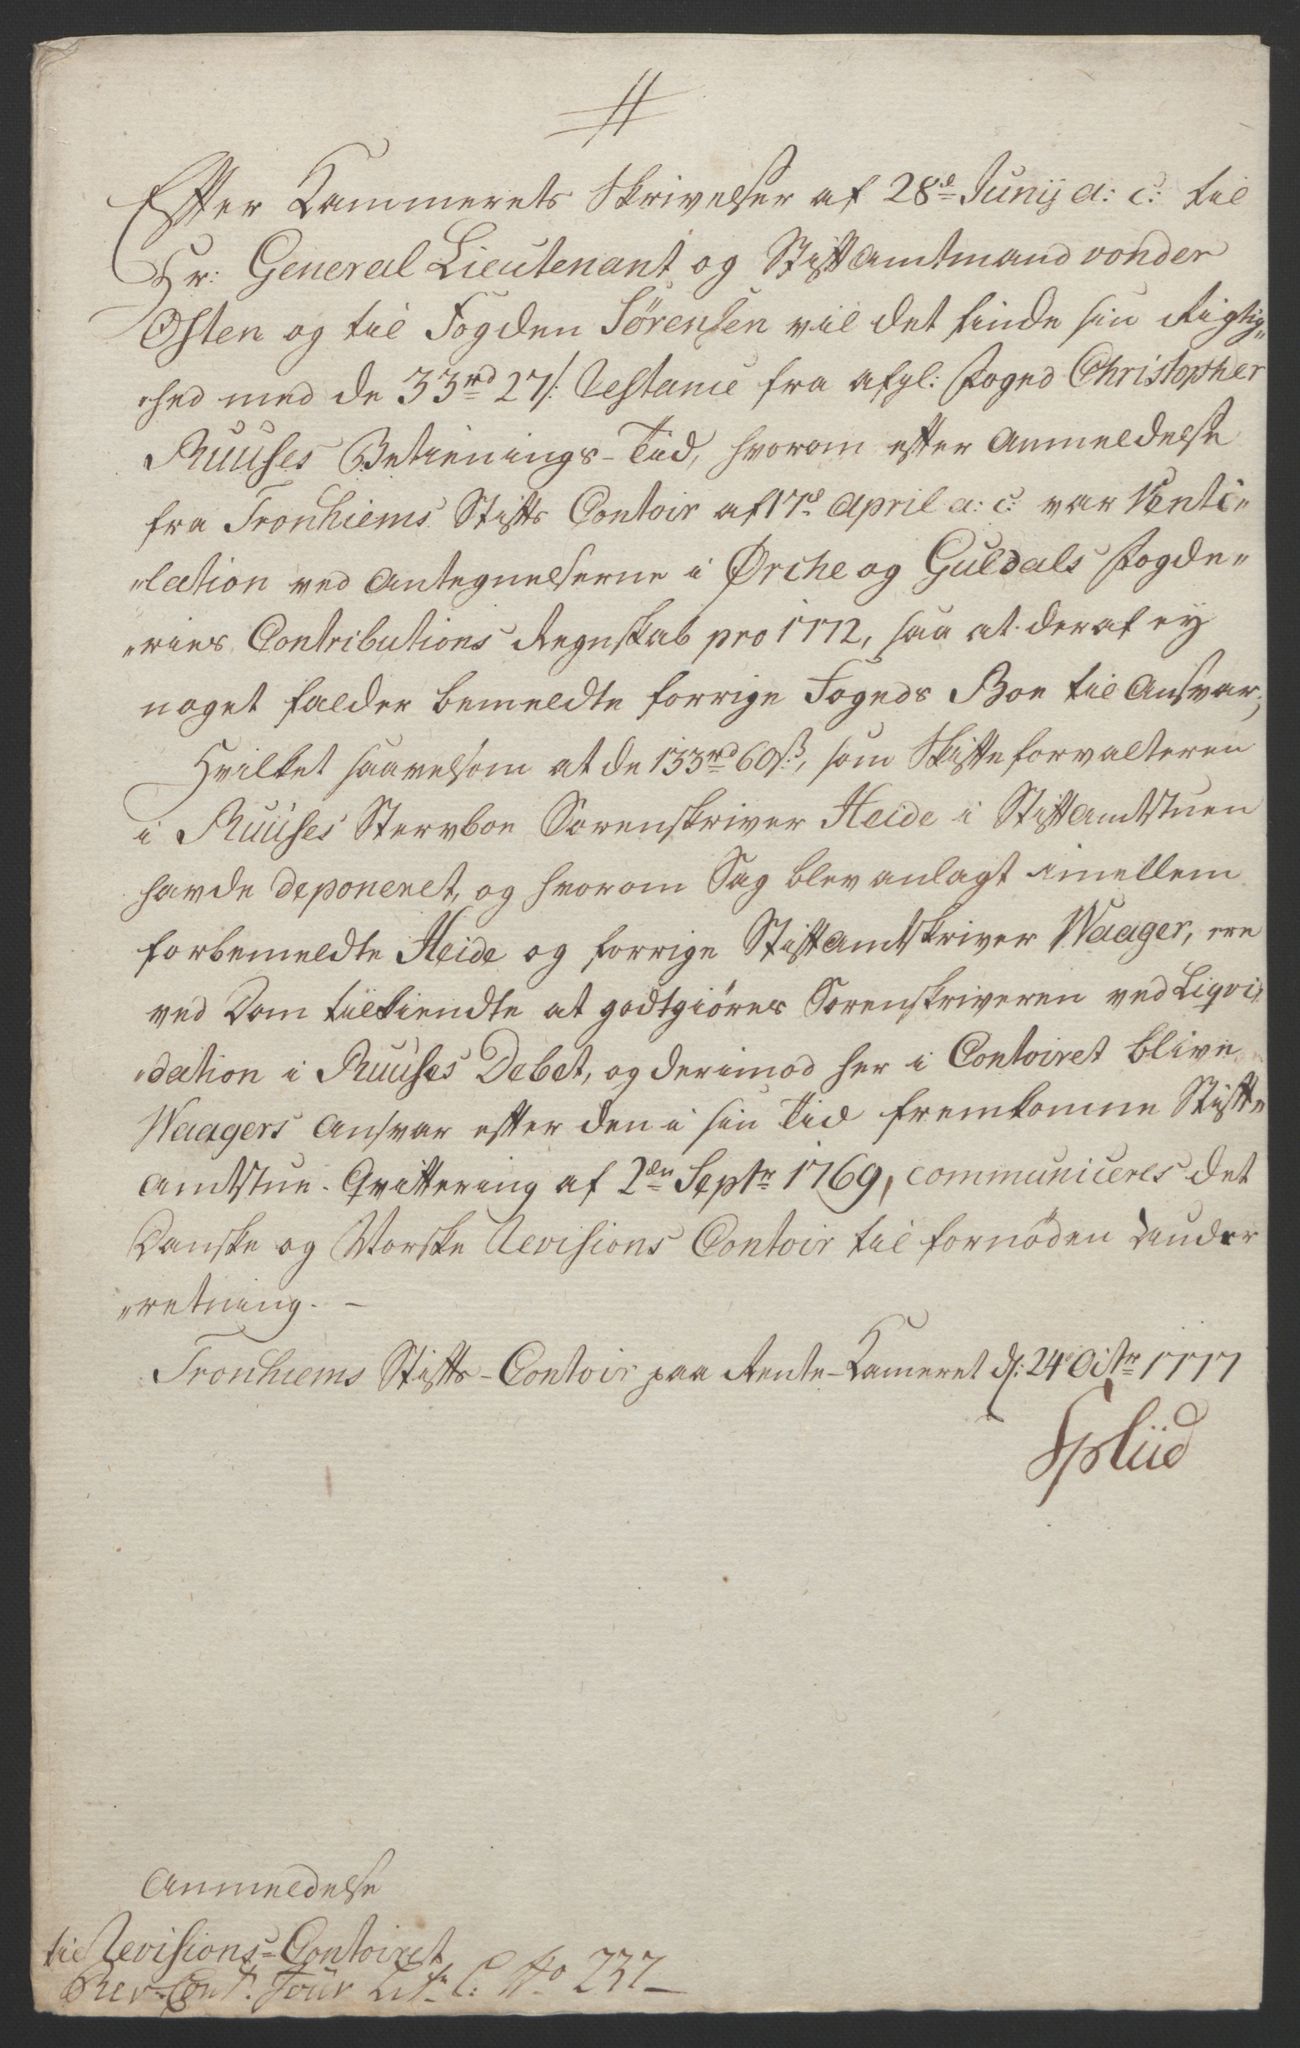 Efter Kammerets Skrivelser af 28de Junij a: c: til
Hr: General Lieutenant og Stiftamtmand vonder
Osten og til Fogden Sörensen vil det finde sin Rigtig„
„hed med de 33rd 27s: Restance fra afgl: Foged Christopher
Ruuses Betienings-Tid, hvorom efter Anmeldelse
fra Tronhiems Stifts Contoir af 17de April a: c: var Venti„
„lation ved Antegnelserne i Ørche og Guldals Fogde„
„ries Contributions Regnskab pro 1772, saa at deraf ey
noget falder bemeldte forrige Fogeds Boe til Ansvar;
Hvilket saavelsom at de 133rd 60s, som Skifteforvalteren
i Ruuses Stervboe Sorenskriver Heide i Stiftamtstuen
havde deponeret, og hvorom Sag blev anlagt imellem
forbemeldte Heide og forrige Stiftamtskriver Waager, ere
ved Dom tilkiendte at godtgiöres Sorenskriveren ved Liqvi„
„dation i Ruuses Debet, og derimod her i Contoiret blive
Waagers Ansvar efter den i sin Tid fremkomne Stift„
Amtstue-Qvittering af 2den Septr 1769, communiceres det
Danske og Norske Revisions Contoir til fornöden Under
„retning. —
Tronhiems Stifts-Contoir paa Rente-Kameret d: 24 Octr 1777
Spliid
Anmeldelse
til Revisions-Contoiret
Rev: Cont: Jour Litr: C: No 237